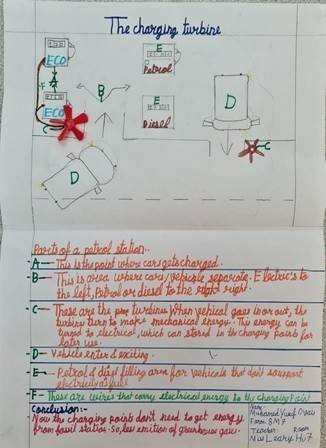 The charging turbine
ECO
E
Petrol
F
A
ECO
B
E
Diesel
D
C
C
D
Parts of a petrol station..
A — This is the point where cars gets charged.
B — This is area where car/vehicle separate. Electric's to
the left, Petrol or diesel to the right.
C — These are the turbines. When vehical goes in or out, the
turbine turn to make mechanical energy. This energy can be
turned to electrical, which can stored in the charging points for
later use.
D — Vehicle enter & exiting.
E — Petrol & diesel filling area for vehicals that don't support
electricity as fuel.
F — These are wires that carry electrical energy to the Charging Point
Conclusion:-
Now the charging points don't need to get energy
from fossil station. So, less emition of greenhouse gases.
Name:
Muhamad Yusuf Ovais
Form 8M7
Teacher Room
Miss Leahy Hu7